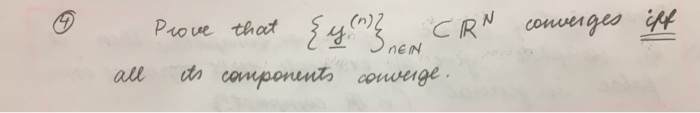 ④ Prove that {y^(n)}_{n∈ℕ} ⊂ ℝ^N converges iff
all its components converge.